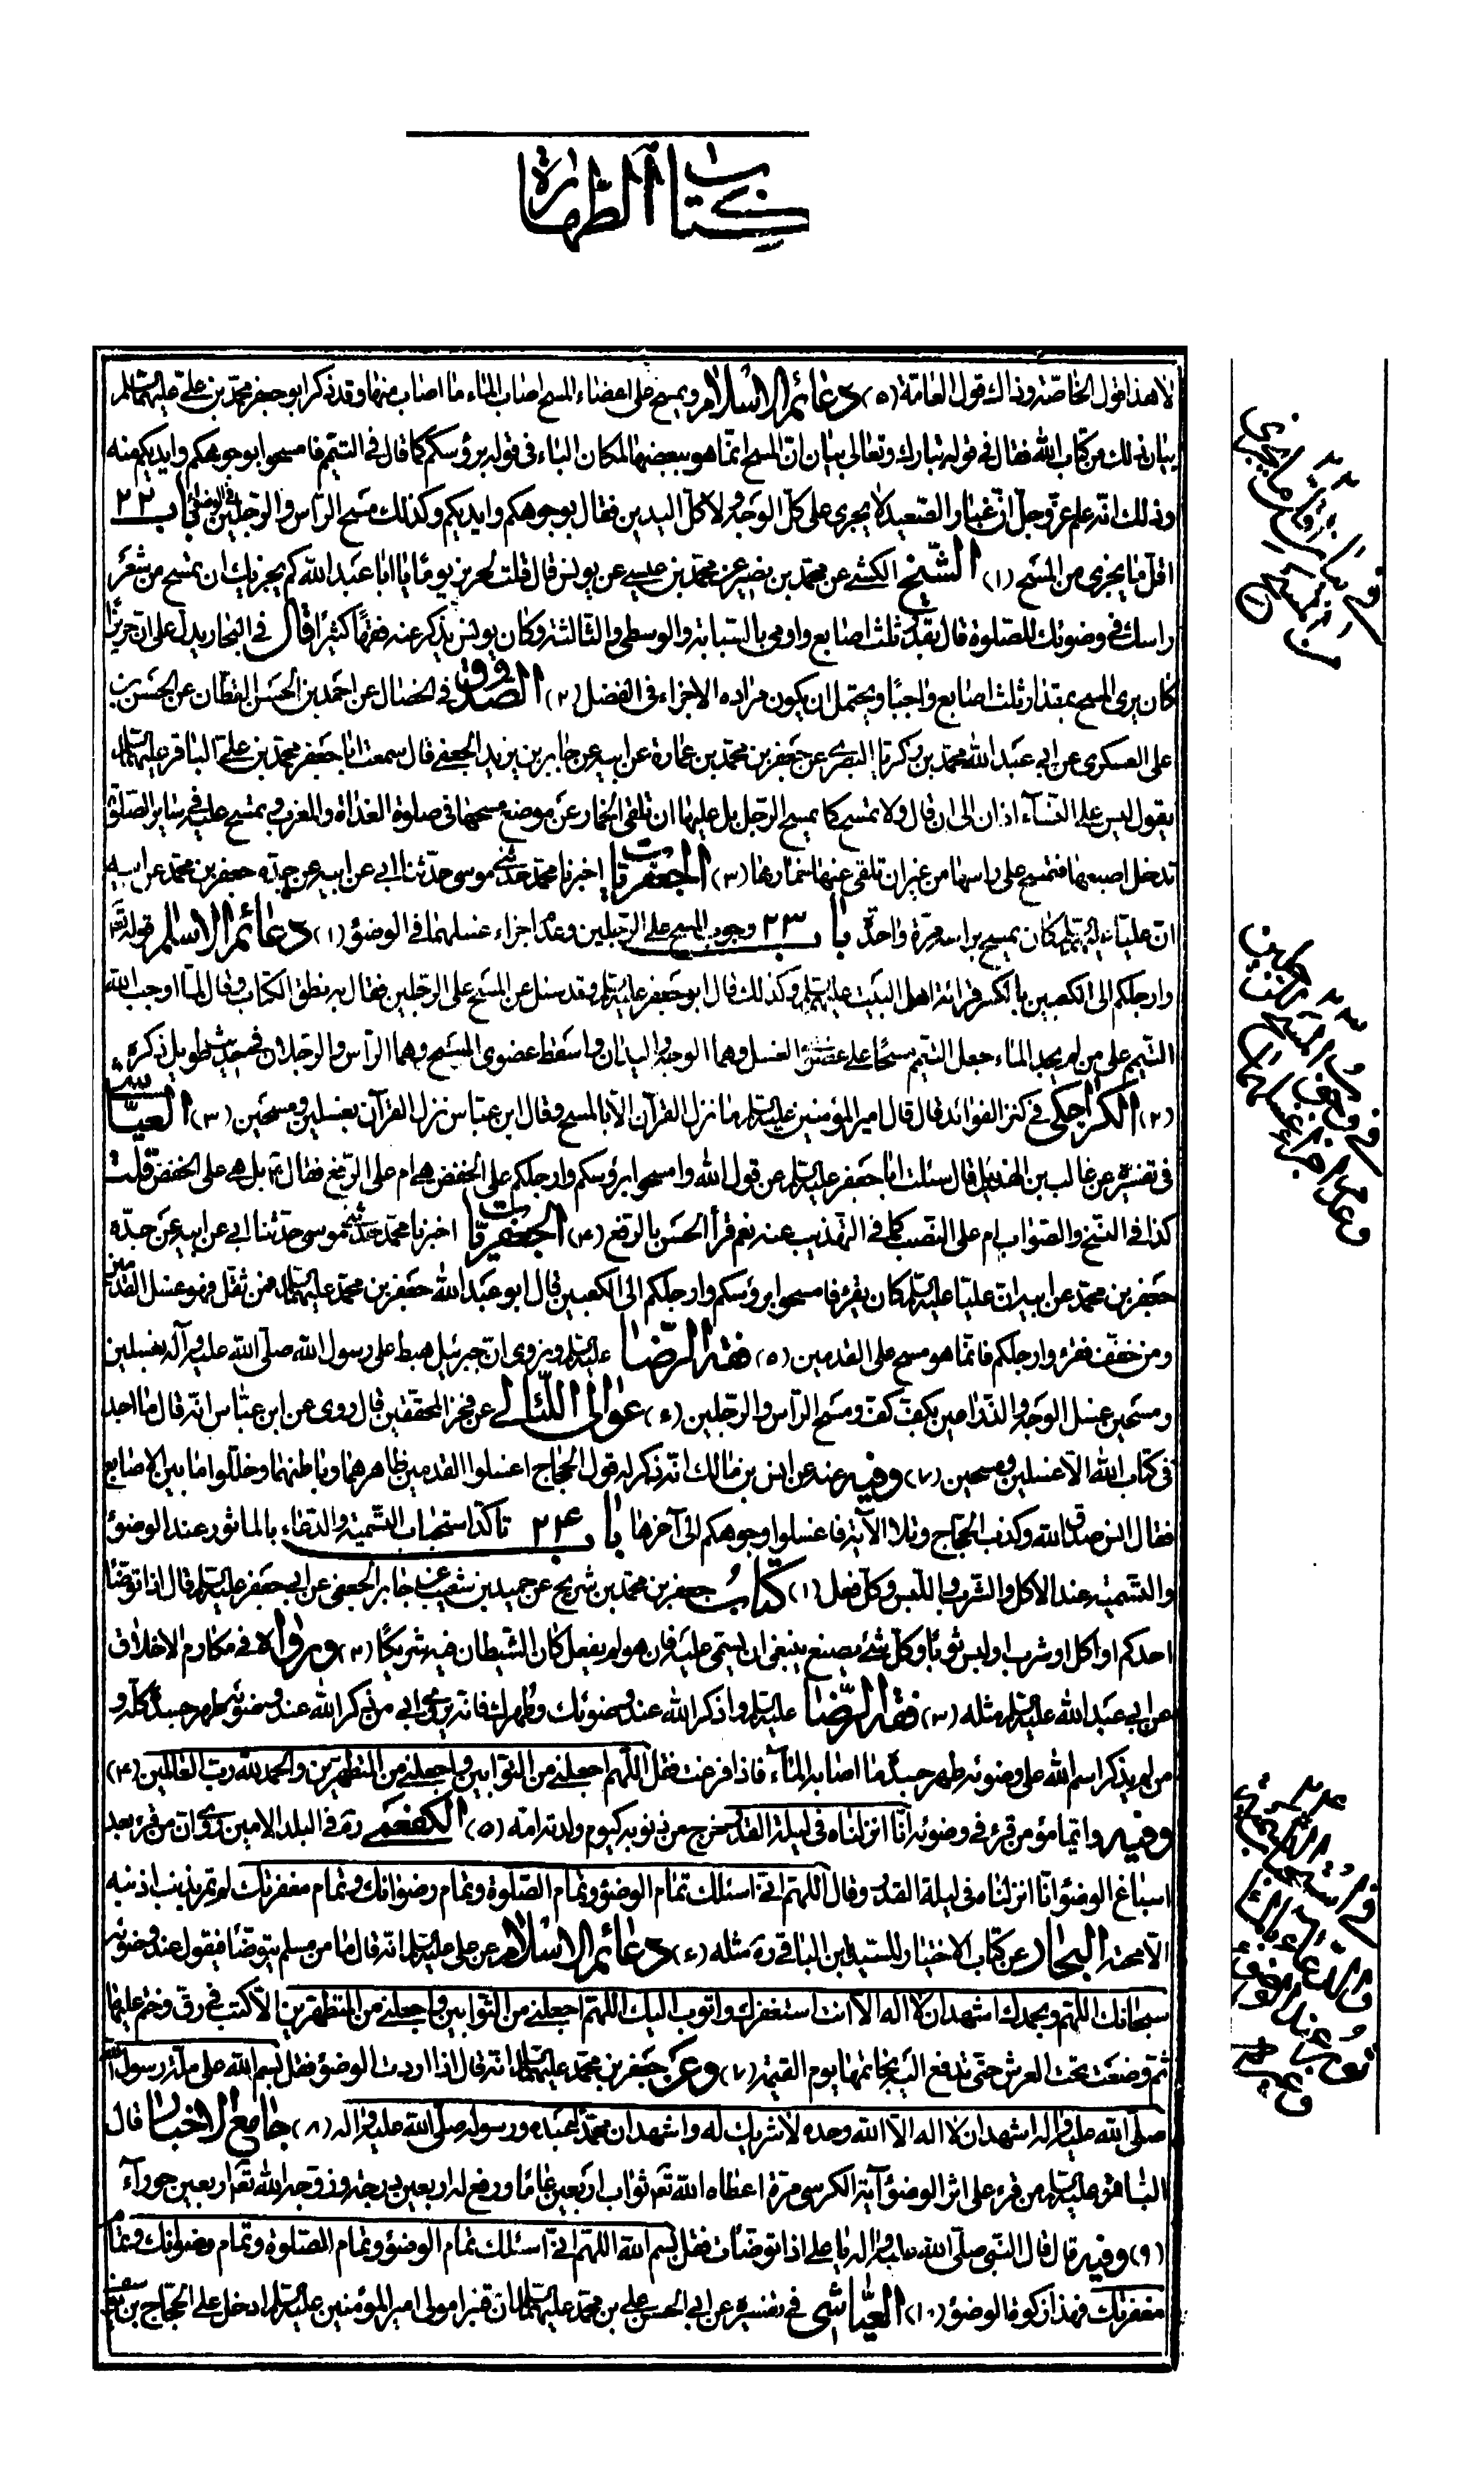 كتاب الطهارة
لا هذا قول الخاصة وذاك قول العامة (٥) دعائم الاسلام ويمسح على اعضاء المسح اصاب الماء ما اصاب منها وقد ذكر ابو جعفر محمد بن علي عليهما السلم
بيان ذلك من كتاب الله فقال في قوله تبارك وتعالى بيان ان المسح انما هو ببعضها لمكان الباء في قوله برؤسكم كما قال في التيمم فامسحوا بوجوهكم وايديكم منه
وذلك انه علم عز وجل ان غبار الصعيد لا يجري على كل الوجه ولا كل اليدين فقال بوجوهكم وايديكم وكذلك مسح الرأس والرجلين في الوضوء باب ٢٢
اقل ما يجزي من المسح (١) الشيخ الكشي عن محمد بن نصير عن محمد بن عيسى عن يونس قال قلت لحريز يوما يا ابا عبد الله كم يجزيك ان تمسح من شعر
راسك في وضوئك للصلوة قال بقدر ثلث اصابع واومى بالسبابة والوسطى والثالثة وكان يونس يذكر عنه فقها كثيرا قال في البحار يدل على ان حريزا
كان يرى المسح بمقدار ثلث اصابع واجبا ويحتمل ان يكون مراده الاجزاء في الفضل (٢) الصدوق في الخصال عن احمد بن الحسن القطان عن الحسن بن
علي العسكري عن ابي عبد الله محمد بن زكريا البصري عن جعفر بن محمد بن عمارة عن ابيه عن جابر بن يزيد الجعفي قال سمعت ابا جعفر محمد بن علي الباقر عليهما السلم
يقول ليس على النساء اذان الى ان قال ولا تمسح كما يمسح الرجل بل عليها ان تلقي الخمار عن موضع مسحها في صلوة الغداة والمغرب وتمسح عليه في سائر الصلوة
تدخل اصبعها فتمسح على راسها من غير ان تلقي عنها خمارها (٣) الجعفريات اخبرنا محمد حدثني موسى حدثنا ابي عن ابيه عن جده جعفر بن محمد عن ابيه
ان عليا عليه السلم كان يمسح براسه مرة واحدة باب ٢٣ وجوب المسح على الرجلين وعدم اجزاء غسلهما في الوضوء (١) دعائم الاسلم قوله تعالى
وارجلكم الى الكعبين بالكسر قرائة اهل البيت عليهم السلم وكذلك قال ابو جعفر عليه السلم وقد سئل عن المسح على الرجلين فقال به نطق الكتاب وقال لما اوجب الله
التيمم على من لم يجد الماء جعل التيمم مسحا على عضوي الغسل وهما الوجه واليدان واسقط عضوي المسح وهما الرأس والرجلان في حديث طويل ذكره
(٢) الكراجكي في كنز الفوائد قال قال امير المؤمنين عليه السلم ما نزل القرآن الا بالمسح وقال ابن عباس نزل القرآن بغسلين ومسحين (٣) العياشي
في تفسيره عن غالب بن الهذيل قال سئلت ابا جعفر عليه السلم عن قول الله وامسحوا برؤسكم وارجلكم على الخفض هي ام على الرفع فقال بل هي على الخفض قلت
كذا في النسخ والصواب ام على النصب كما في التهذيب عنه نعم قرأ الحسن بالرفع (٤) الجعفريات اخبرنا محمد حدثني موسى حدثنا ابي عن ابيه عن جده
جعفر بن محمد عن ابيه ان عليا عليه السلم كان يقرء فامسحوا برؤسكم وارجلكم الى الكعبين قال ابو عبد الله جعفر بن محمد عليهما السلم فمن ثقل فهو غسل القدمين
ومن خفف فقرء وارجلكم فانما هو مسح على القدمين (٥) فقه الرضا عليه السلم ونروي ان جبرئيل هبط على رسول الله صلى الله عليه وآله بغسلين
ومسحين غسل الوجه والذراعين بكف كف ومسح الرأس والرجلين (٦) عوالي اللئالي عن فخر المحققين قال روى عن ابن عباس انه قال ما اجد
في كتاب الله الا غسلين ومسحين (٧) وفيه عنه عن انس بن مالك انه ذكر له قول الحجاج اغسلوا القدمين ظاهرهما وباطنهما وخللوا ما بين الاصابع
فقال انس صدق الله وكذب الحجاج وتلا الآية فاغسلوا وجوهكم الى آخرها باب ٢٤ تاكد استحباب التسمية والدعاء بالماثور عند الوضوء
والتسمية عند الاكل والشرب واللبس وكل فعل (١) كتاب جعفر بن محمد بن شريح عن حميد بن شعيب عن جابر الجعفي عن ابي جعفر عليه السلم قال اذا توضأ
احدكم او اكل او شرب او لبس ثوبا وكل شئ يصنع ينبغي ان يسمي عليه فان هو لم يفعل كان الشيطان فيه شريكا (٢) ورواه في مكارم الاخلاق
عن ابي عبد الله عليه السلم مثله (٣) فقه الرضا عليه السلم واذكر الله عند وضوئك وطهرك فانه يروى ابي من ذكر الله عند وضوئه طهر جسده كله و
من لم يذكر اسم الله على وضوئه طهر جسده ما اصابه الماء فاذا فرغت فقل اللهم اجعلني من التوابين واجعلني من المتطهرين والحمد لله رب العالمين (٤)
وفيه وايما مؤمن قرء في وضوئه انا انزلناه في ليلة القدر خرج من ذنوبه كيوم ولدته امه (٥) الكفعمي ره في البلد الامين روي ان من قرء بعد
اسباغ الوضوء انا انزلناه في ليلة القدر وقال اللهم اني اسئلك تمام الوضوء وتمام الصلوة وتمام رضوانك وتمام مغفرتك لم تمر بذنب اذنبه
الا محته البحار عن كتاب الاختيار للسيد ابن الباقي ره مثله (٦) دعائم الاسلام عن علي عليه السلم انه قال ما من مسلم يتوضأ فيقول عند وضوئه
سبحانك اللهم وبحمدك اشهد ان لا اله الا انت استغفرك واتوب اليك اللهم اجعلني من التوابين واجعلني من المتطهرين الا كتب في رق وختم عليها
ثم وضعت تحت العرش حتى تدفع اليه بخاتمها يوم القيمة (٧) وعن جعفر بن محمد عليهما السلم انه قال اذا اردت الوضوء فقل بسم الله على ملة رسول الله
صلى الله عليه وآله اشهد ان لا اله الا الله وحده لا شريك له واشهد ان محمدا عبده ورسوله صلى الله عليه وآله (٨) جامع الاخبار قال
الباقر عليه السلم من قرء على اثر الوضوء آية الكرسي مرة اعطاه الله تع ثواب اربعين عاما ورفع له اربعين درجة وزوجه الله تع اربعين حوراء
(٩) وفيه قال قال النبي صلى الله عليه وآله يا علي اذا توضأت فقل بسم الله اللهم اني اسئلك تمام الوضوء وتمام الصلوة وتمام رضوانك وتمام
مغفرتك فهذا زكوة الوضوء (١٠) العياشي في تفسيره عن ابي الحسن علي بن محمد عليهما السلم ان قنبرا مولى امير المؤمنين عليه السلم ادخل على الحجاج بن يوسف
٢٢
في
ما يجزي
من المسح
٢٣
في وجوب المسح
وعدم اجزاء غسلهما
٢٤
في
والدعاء
عند الوضوء
وغيره